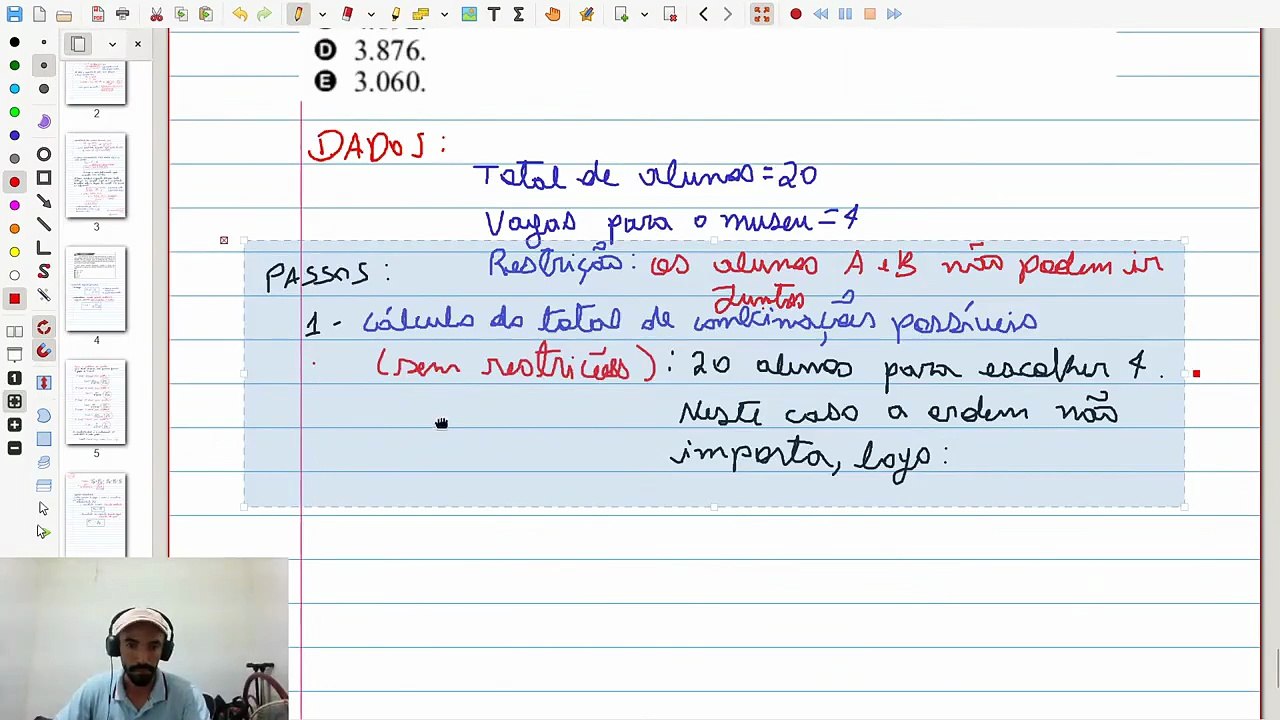 D 3.876.
E 3.060.
DADOS:
Total de alunos = 20
Vagas para o museu = 4
Restrição: os alunos A e B não podem ir
juntos
PASSOS:
1 - cálculo do total de combinações possíveis
(sem restrições): 20 alunos para escolher 4.
Neste caso a ordem não
importa, logo:
2
3
4
5